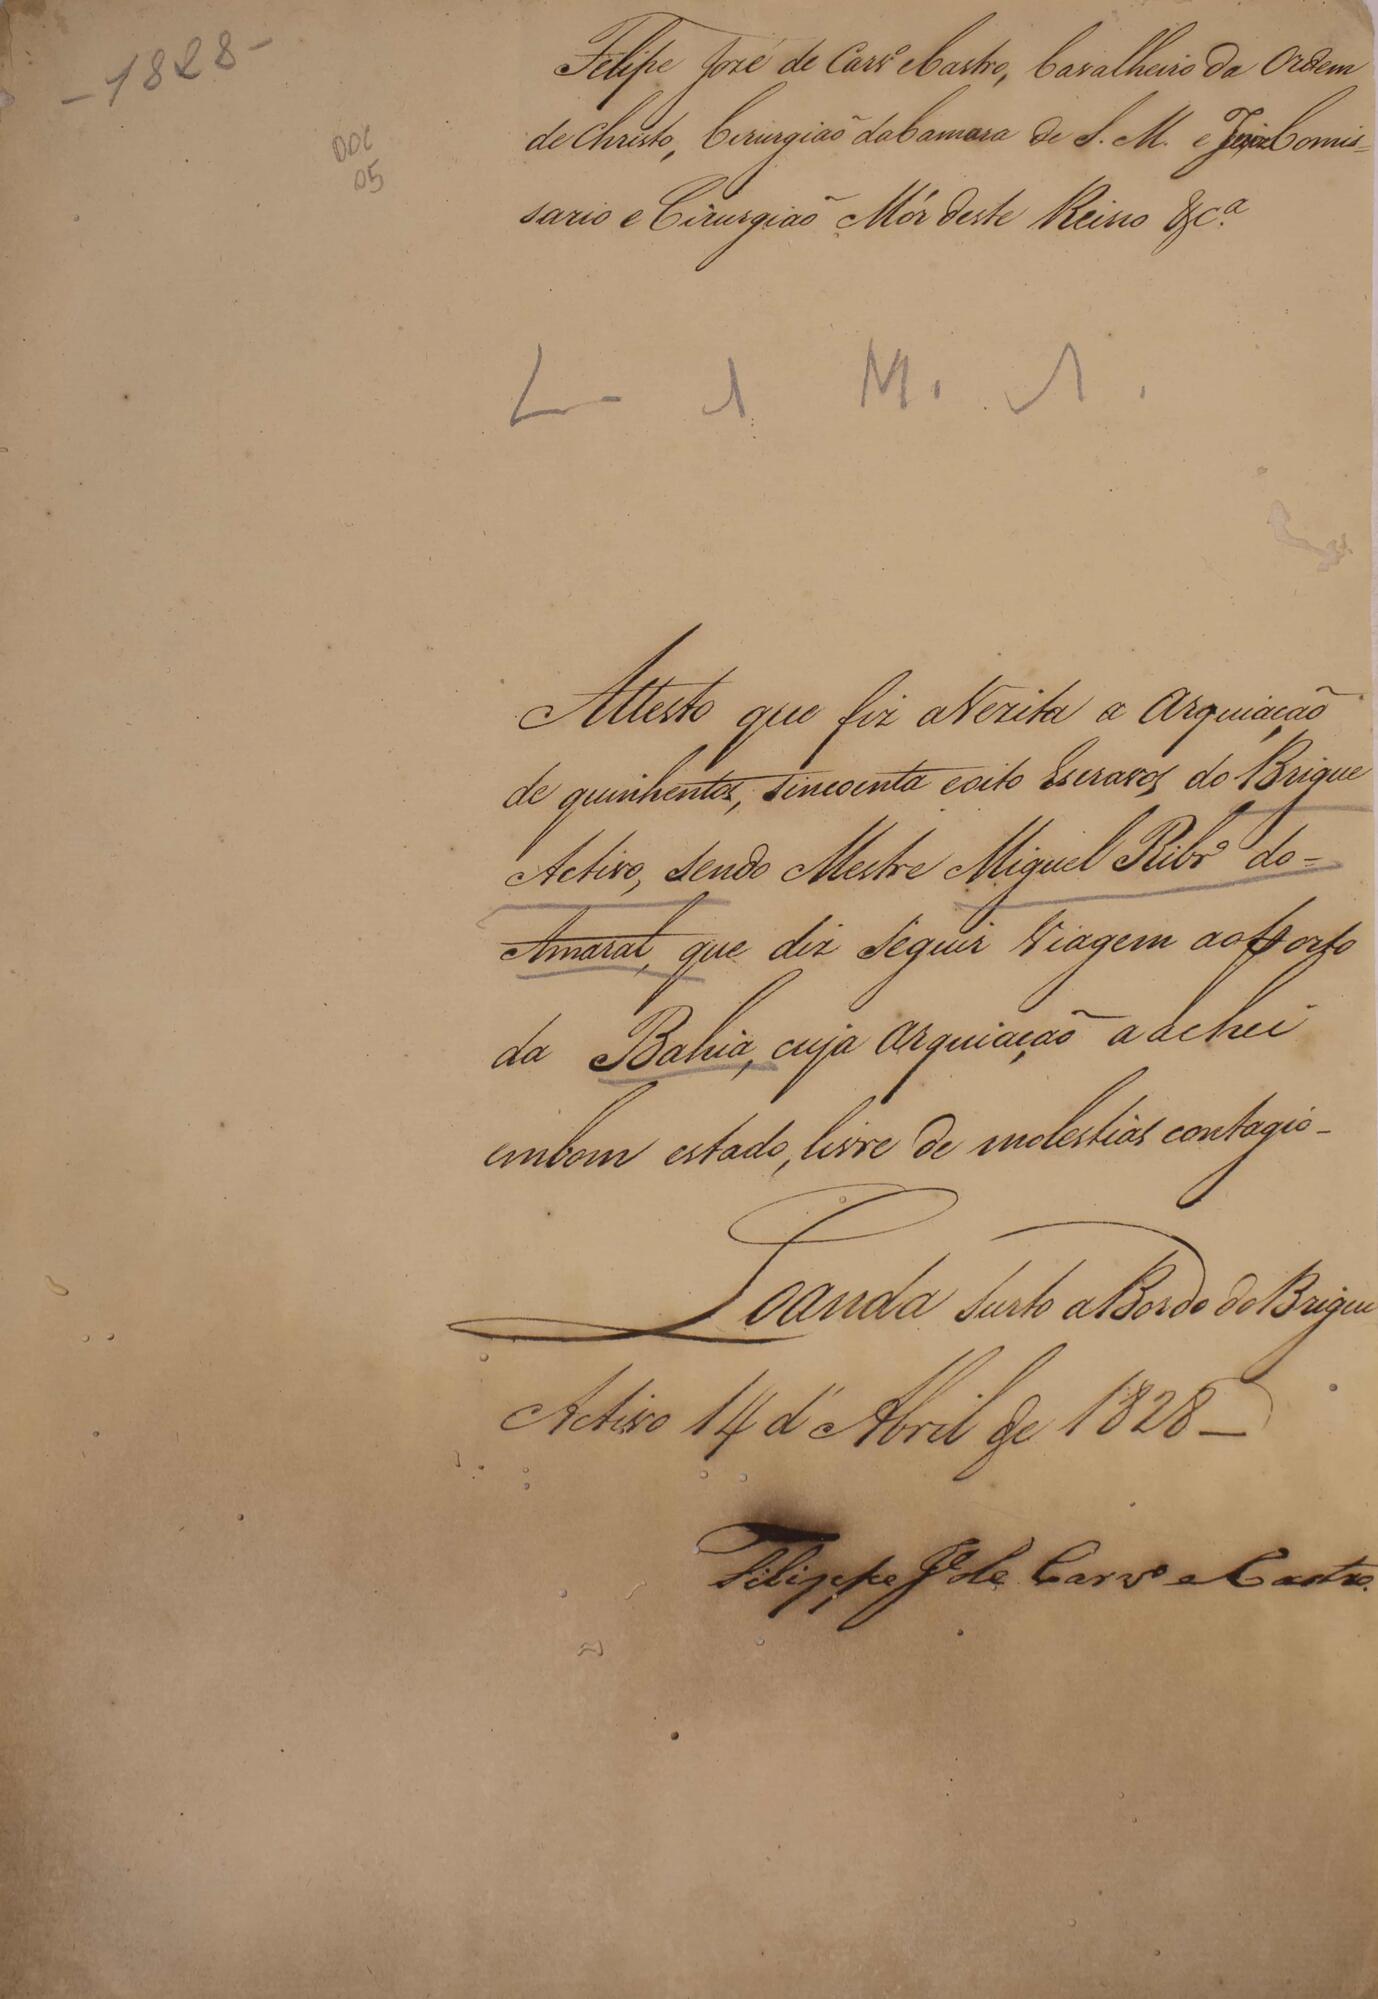 -1828-
DOC
05
Felipe José de Carvº e Castro, Cavalheiro da Ordem
de Christo, Cirurgiaõ da Camara de S. M. e Juiz Comis=
sario e Cirurgiaõ Mór deste Reino &cª
Attesto que fiz a Vezita a Arquiaçaõ
de quinhentos, sincoenta e oito Escravos do Brigue
Activo, sendo Mestre Miguel Ribrº do=
Amaral, que diz seguir Viagem ao Porto
da Bahia, cuja Arquiaçaõ a achei
em bom estado, livre de molestias contagio-
Loanda surto a Bordo do Brigue
Activo 14 d'Abril de 1828_
Filippe Jº de Carvº e Castro.